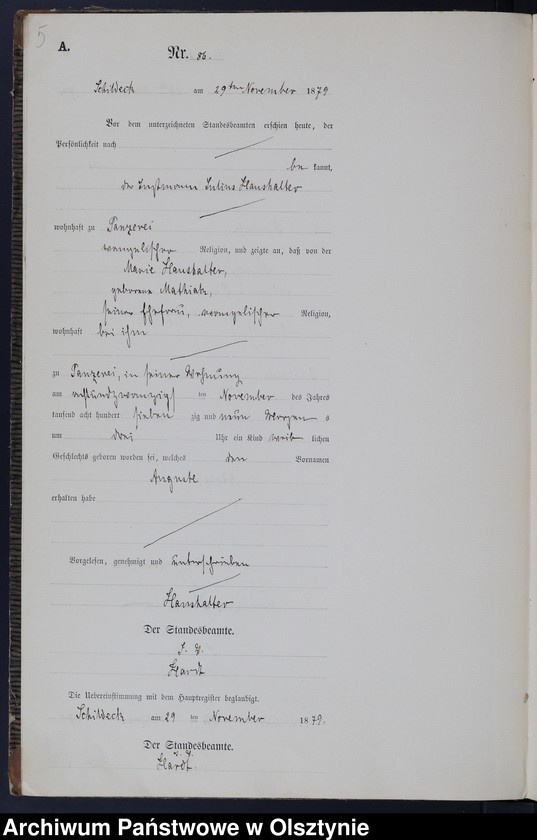 5
A.
Nr. 86.
Schildeck am 29ten November 1879
Vor dem unterzeichneten Standesbeamten erschien heute, der
Persönlichkeit nach
be kannt,
der Instmann Julius Haushalter
wohnhaft zu Panzerei
evangelischer Religion, und zeigte an, daß von der
Marie Haushalter,
geborene Mathiak,
seiner Ehefrau, evangelischer Religion,
wohnhaft bei ihm
zu Panzerei, in seiner Wohnung
am achtundzwanzigsten November des Jahres
tausend acht hundert sieben zig und neun Morgen s
um drei Uhr ein Kind weib lichen
Geschlechts geboren worden sei, welches den Vornamen
Auguste
erhalten habe
Vorgelesen, genehmigt und unterschrieben
Haushalter
Der Standesbeamte.
Hardt
Die Uebereinstimmung mit dem Hauptregister beglaubigt.
Schildeck am 29 ten November 1879.
Der Standesbeamte.
Hardt
Archiwum Państwowe w Olsztynie